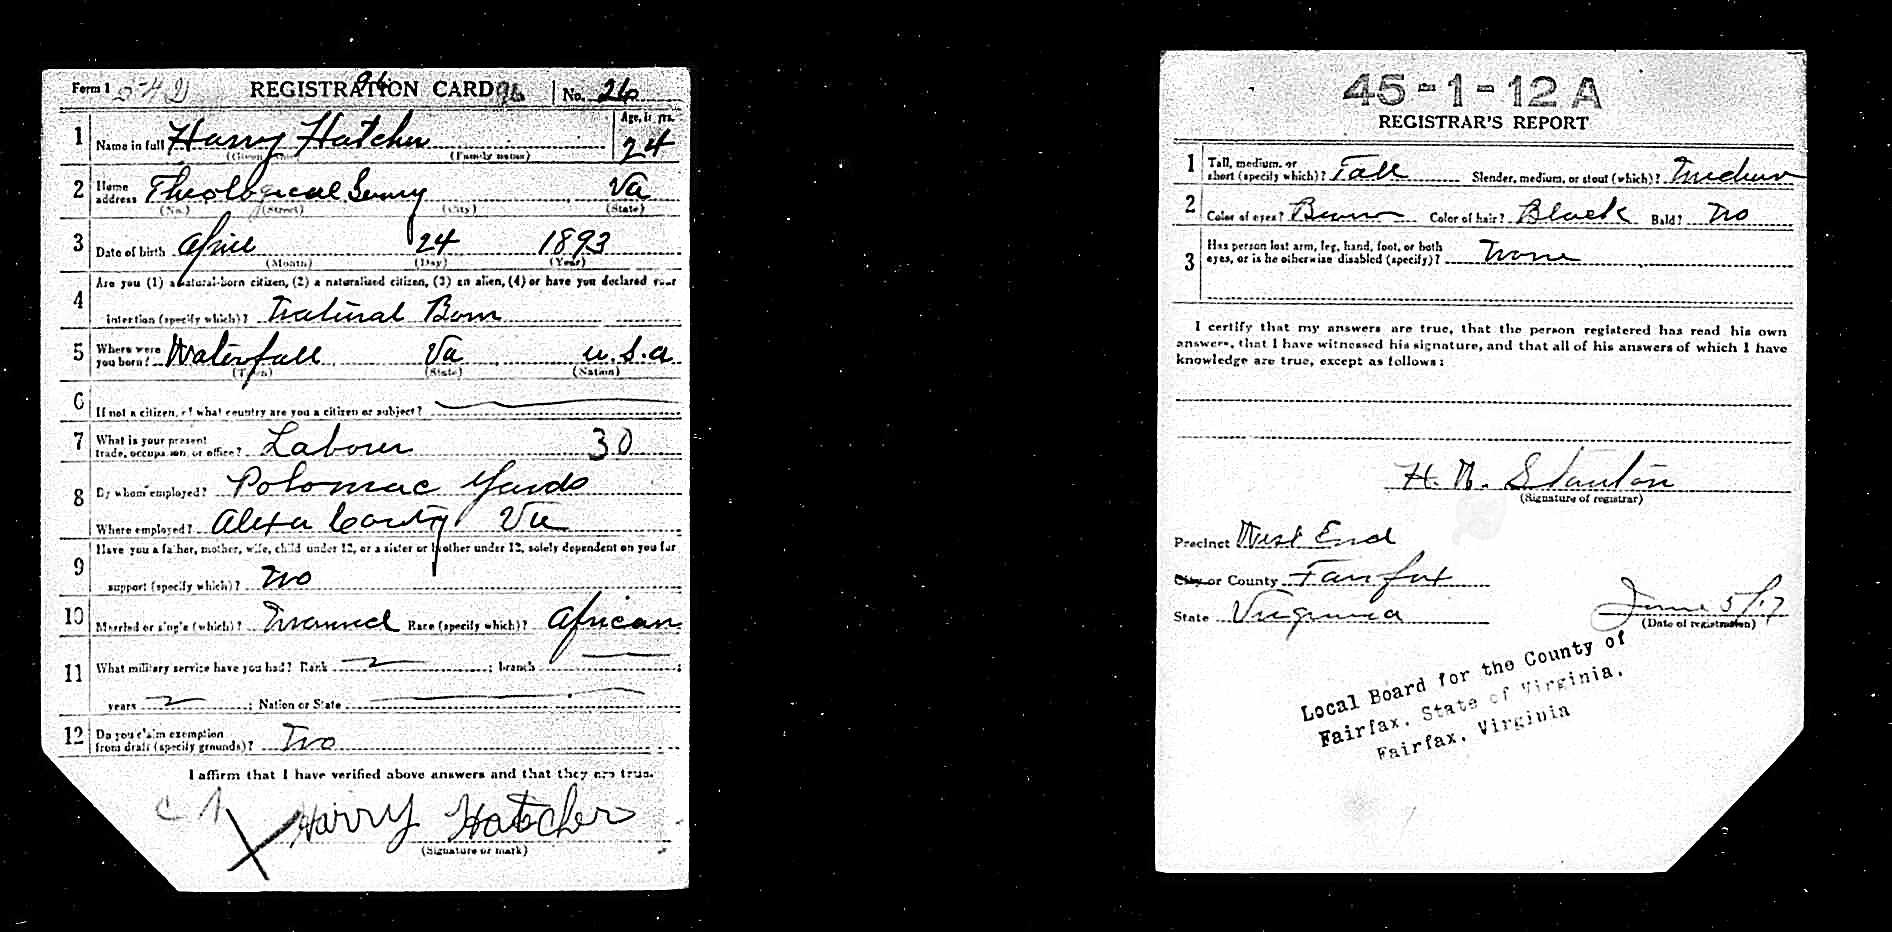 Form 1 542 REGISTRATION CARD 96 No. 26
96
1 Name in full Harry Hatcher Age, in yrs. 24
(Given name) (Family name)
2 Home address Theological Semy Va
(No.) (Street) (City) (State)
3 Date of birth April 24 1893
(Month) (Day) (Year)
4 Are you (1) a natural-born citizen, (2) a naturalized citizen, (3) an alien, (4) or have you declared your
intention (specify which)? Natural Born
5 Where were you born? Waterfall Va U.S.A
(Town) (State) (Nation)
6 If not a citizen, of what country are you a citizen or subject?
7 What is your present trade, occupation, or office? Laborer 30
8 By whom employed? Potomac Yards
Where employed? Alexa County Va
9 Have you a father, mother, wife, child under 12, or a sister or brother under 12, solely dependent on you for
support (specify which)? No
10 Married or single (which)? Married Race (specify which)? African
11 What military service have you had? Rank ; branch ;
years ; Nation or State
12 Do you claim exemption from draft (specify grounds)? No
I affirm that I have verified above answers and that they are true.
Harry Hatcher
(Signature or mark)
45-1-12 A
REGISTRAR'S REPORT
1 Tall, medium, or short (specify which)? Tall Slender, medium, or stout (which)? Medium
2 Color of eyes? Brown Color of hair? Black Bald? No
3 Has person lost arm, leg, hand, foot, or both
eyes, or is he otherwise disabled (specify)? None
I certify that my answers are true, that the person registered has read his own
answers, that I have witnessed his signature, and that all of his answers of which I have
knowledge are true, except as follows:
H. N. Stanton
(Signature of registrar)
Precinct West End
City or County Fairfax
State Virginia June 5/17
(Date of registration)
Local Board for the County of
Fairfax, State of Virginia,
Fairfax, Virginia